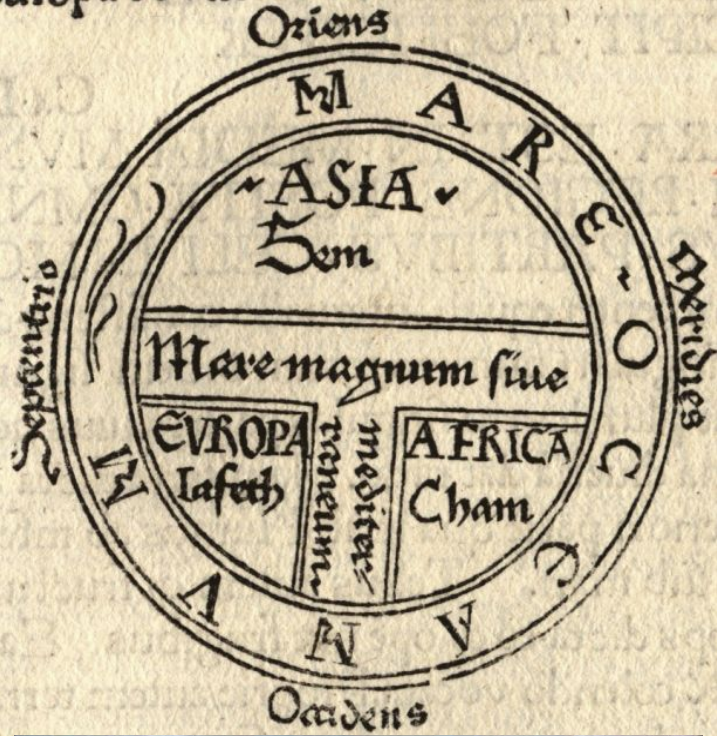 Oriens
MARE ~ OCEANVM
~ ASIA ~
Sem
Septentrio
Meridies
Mare magnum sive
mediter
raneum
EVROPA
Iafeth
AFRICA
Cham
Occidens